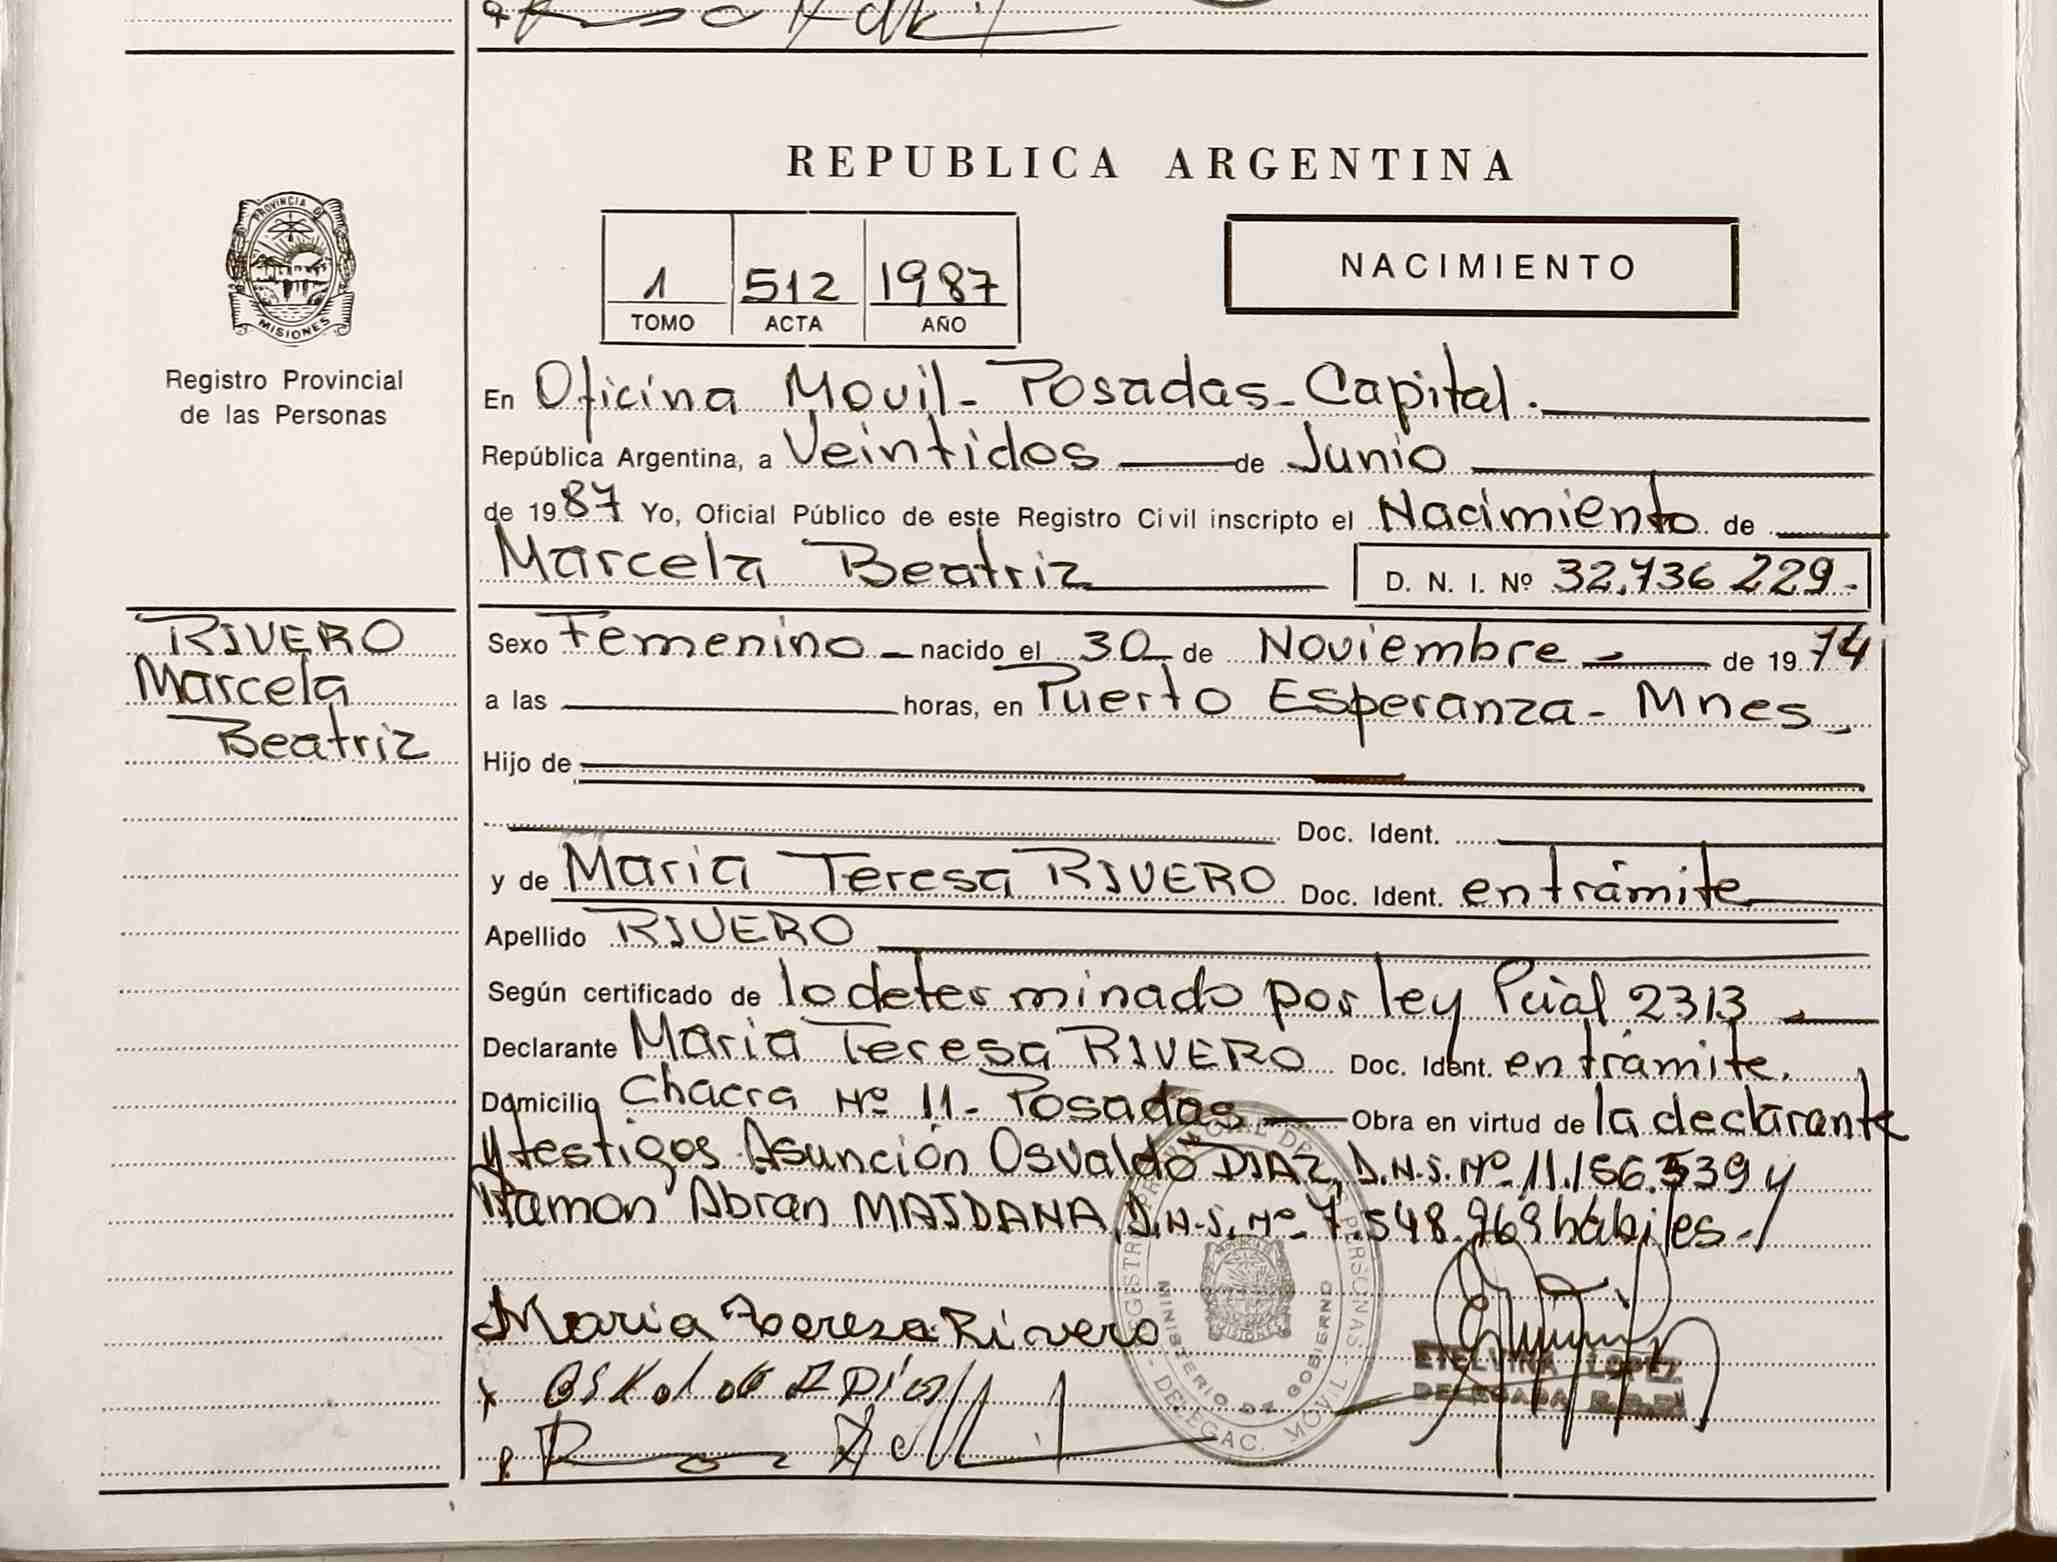 REPUBLICA ARGENTINA
PROVINCIA DE
MISIONES
Registro Provincial
de las Personas
1 512 1987
TOMO ACTA AÑO
NACIMIENTO
En Oficina Movil - Posadas - Capital.
República Argentina, a Veintidos de Junio
de 1987 Yo, Oficial Público de este Registro Civil inscripto el Nacimiento de
Marcela Beatriz D. N. I. Nº 32.736 229.-
RIVERO
Marcela
Beatriz
Sexo Femenino - nacido el 30 de Noviembre - de 1974
a las horas, en Puerto Esperanza - Mnes
Hijo de
Doc. Ident.
y de Maria Teresa RIVERO Doc. Ident. en trámite
Apellido RIVERO
Según certificado de lo determinado por ley Pcial 2313
Declarante Maria Teresa RIVERO Doc. Ident. en trámite.
Domicilio Chacra Nº 11 - Posadas Obra en virtud de la declarante
y testigos Asunción Osvaldo DIAZ, D.N.I. Nº 11.156.539 y
Ramon Abran MAIDANA, D.N.I. Nº 7.548.969 hábiles.-
Maria Tereza Rivero
ETELVINA LOPEZ
DELEGADA
MINISTERIO DE GOBIERNO
DELEGAC. MOVIL